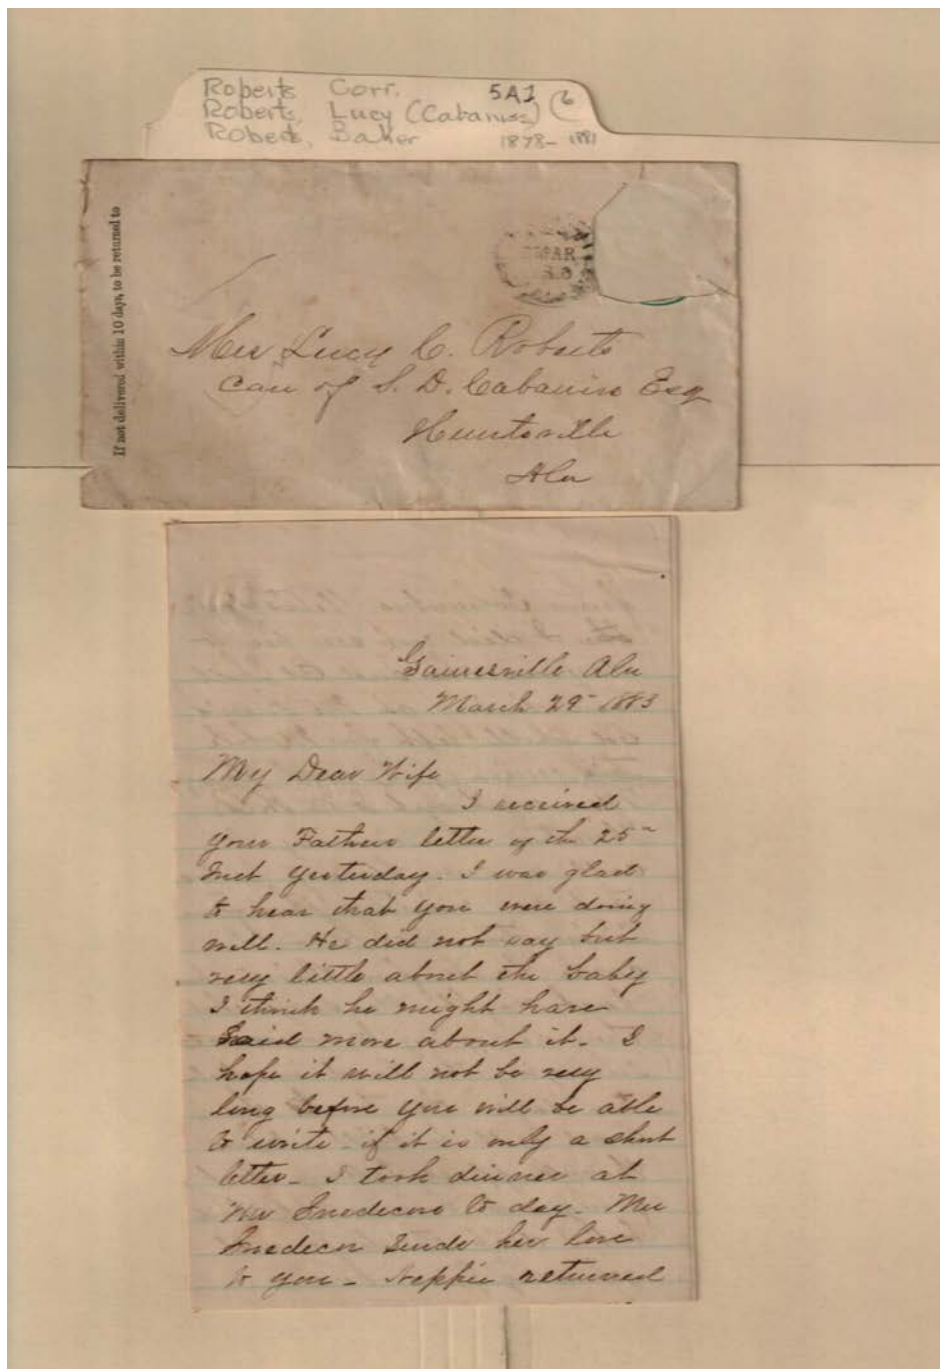 Roberts Corr. 5A1 (6
Roberts, Lucy (Cabaniss)
Roberts, Baker 1878- 1881
If not delivered within 10 days, to be returned to
MAR
Mrs Lucy C. Roberts
Care of S. D. Cabaniss Esq
Huntsville
Ala
Gainesville Ala
March 29 1883
My Dear Wife
I received
your Fathers letter of the 25
Inst yesterday. I was glad
to hear that you were doing
well. He did not say but
very little about the baby
I think he might have
said more about it. I
hope it will not be very
long before you will be able
to write if it is only a short
letter - I took dinner at
Mr Snedecors to day - Mrs
Snedecor Sends her love
to you - returned